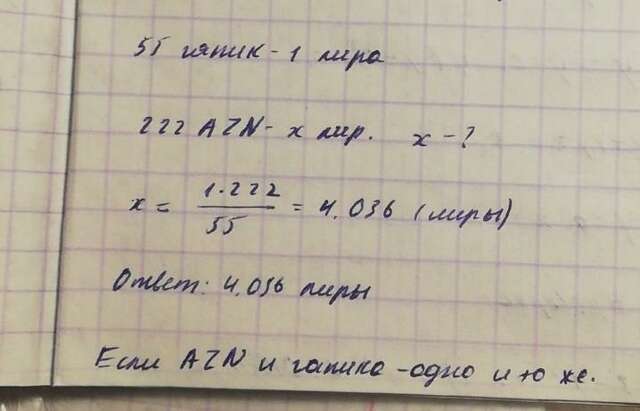 55 гяпик - 1 лира
222 AZN - x лир. x - ?
x = 1·222 / 55 = 4,036 (лиры)
Ответ: 4,036 лиры
Если AZN и гапика - одно и то же.